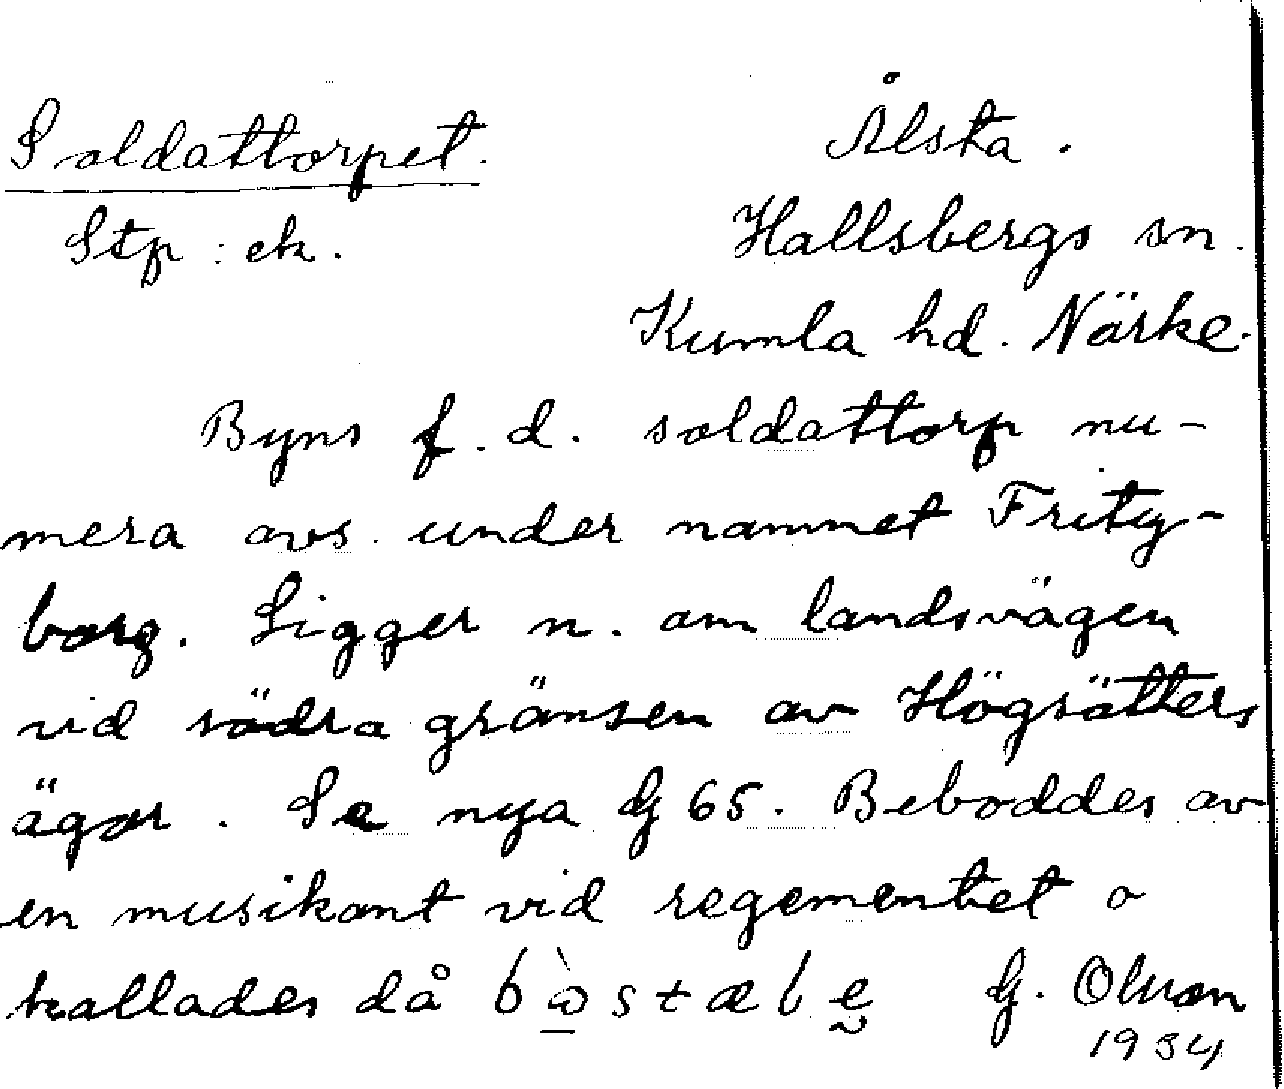 Soldattorpet. Ålsta.
Stp : ek. Hallsbergs sn.
Kumla hd. Närke.
Byns f. d. soldattorp nu-
mera avs. under namnet
borg. Ligger n. om landsvägen
vid södra gränsen av Högsätters
ägor. Se nya G 65. Beboddes av
en musikant vid regementet o
kallades då G. Olsson
1934